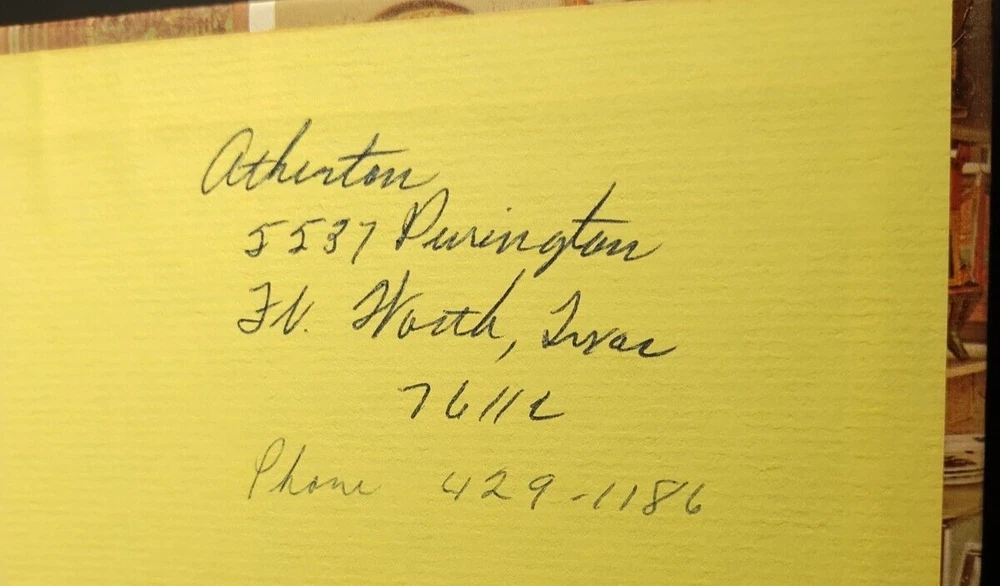 Atherton
5537 Purington
Ft. Worth, Texas
76112
Phone 429-1186